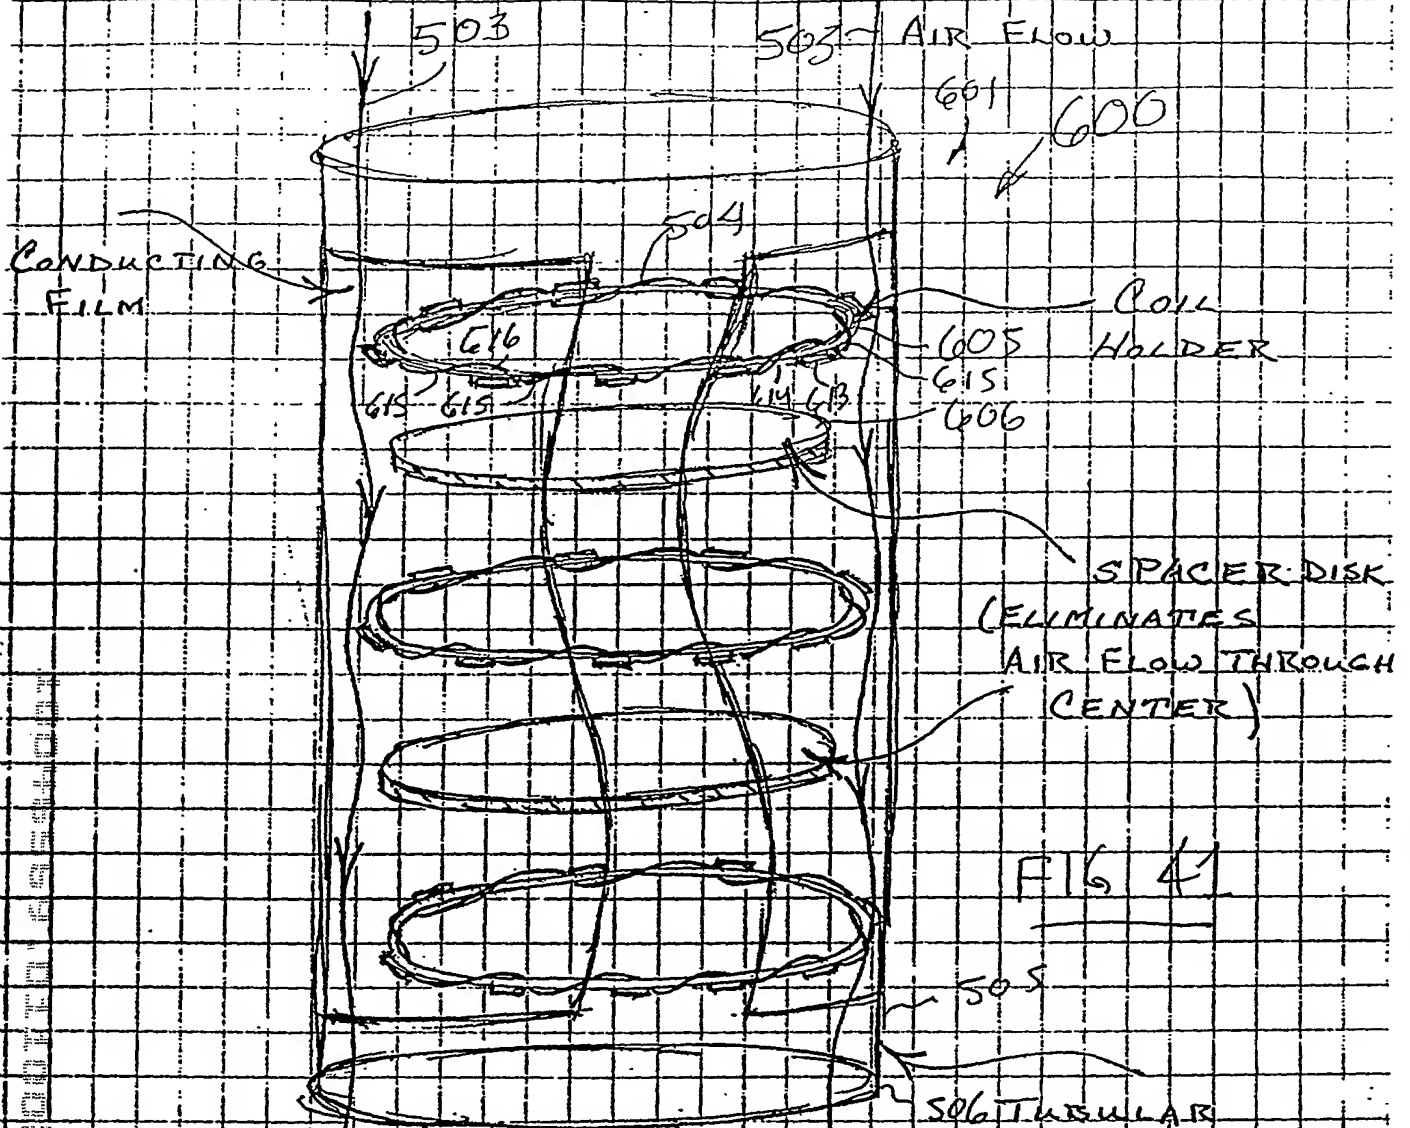 503
503 AIR FLOW
601
600
504
CONDUCTING
FILM
COIL
HOLDER
616
605
615
615 615 614 613
606
SPACER DISK
(ELIMINATES
AIR FLOW THROUGH
CENTER)
FIG 41
505
506 TUBULAR